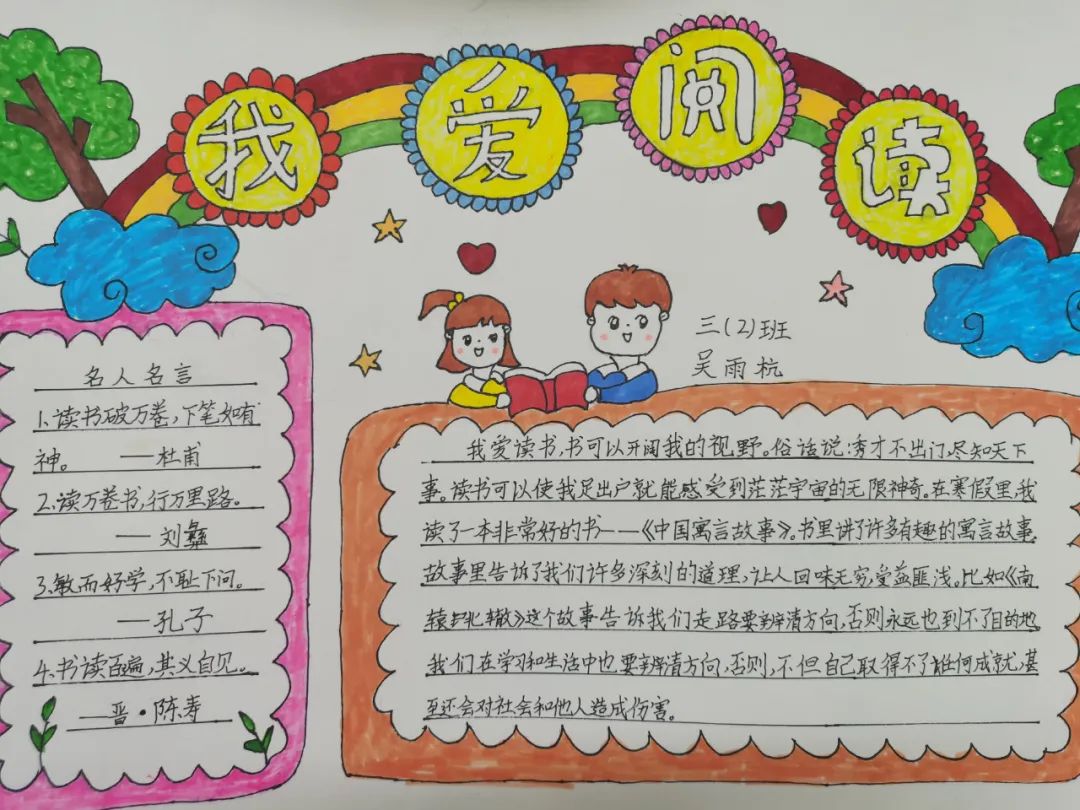 我爱阅读
三(2)班
吴雨杭
名人名言
1.读书破万卷,下笔如有
神。 ——杜甫
2.读万卷书,行万里路。
——刘彝
3.敏而好学,不耻下问。
——孔子
4.书读百遍,其义自见。
——晋·陈寿
我爱读书,书可以开阔我的视野。俗话说:秀才不出门,尽知天下
事。读书可以使我足出户就能感受到茫茫宇宙的无限神奇。在寒假里,我
读了一本非常好的书——《中国寓言故事》。书里讲了许多有趣的寓言故事.
故事里告诉了我们许多深刻的道理,让人回味无穷,受益匪浅。比如《南
辕北辙》这个故事告诉我们走路要辨清方向,否则永远也到不了目的地.
我们在学习和生活中也要辨清方向,否则,不但自己取得不了任何成就,甚
至还会对社会和他人造成伤害。